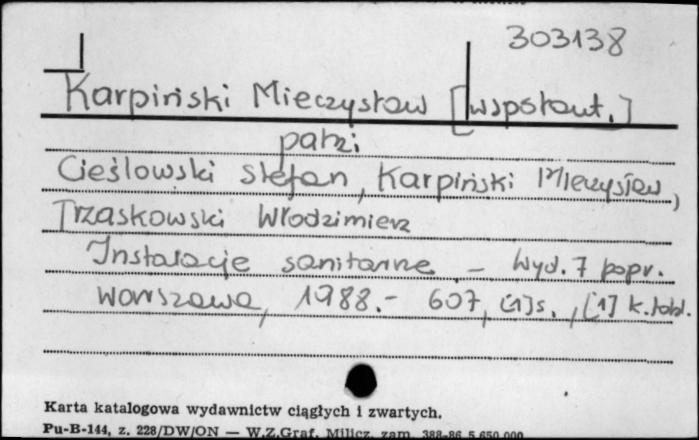 303138
Karpiński Mieczysław [współaut.]
patrz
Cieślowski Stefan, Karpiński Mieczysław,
Trzaskowski Włodzimierz
Instalacje sanitarne - Wyd. 7 popr.
Warszawa, 1988.- 607, [1]s., [1] k.tabl.
Karta katalogowa wydawnictw ciągłych i zwartych.
Pu-B-144, z. 228/DW/ON — W.Z.Graf. Milicz, zam. 388-86 5.650.000